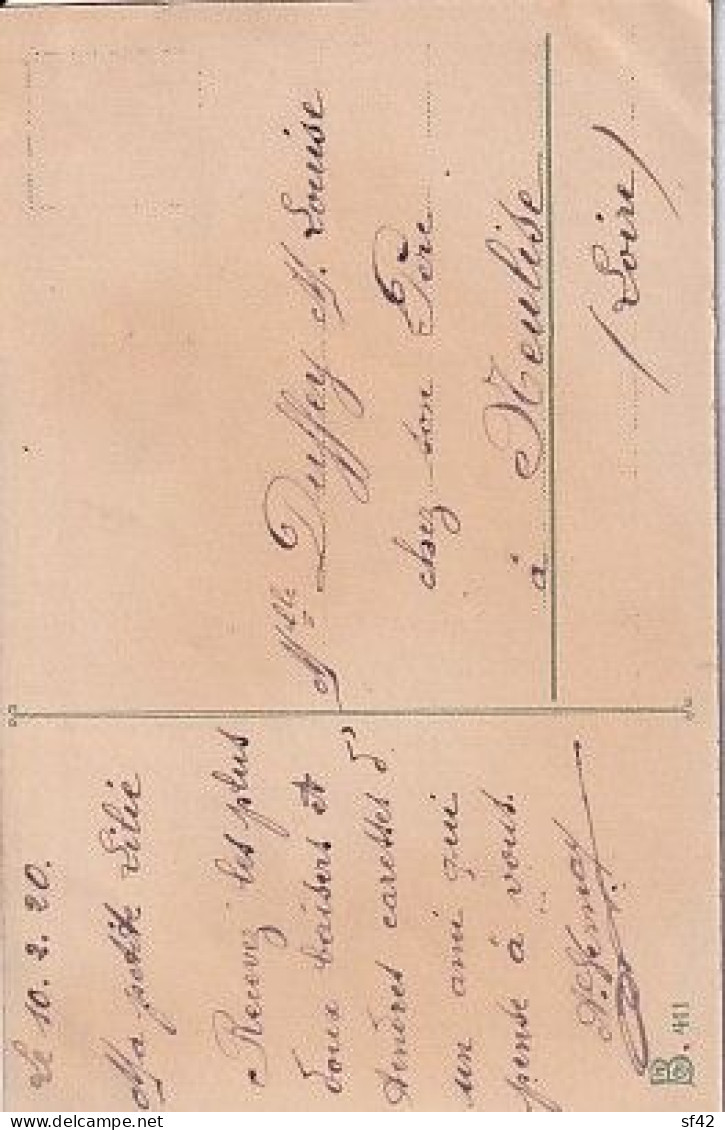 Le 10.2.20.
Ma petite Lilie
Recevez les plus
doux baisers et
tendres caresses d'
un ami qui
pense à vous.
Mlle Duffey M. Louise
chez son Père
à Neulise
(Loire)
411
delcampe.net
sf42